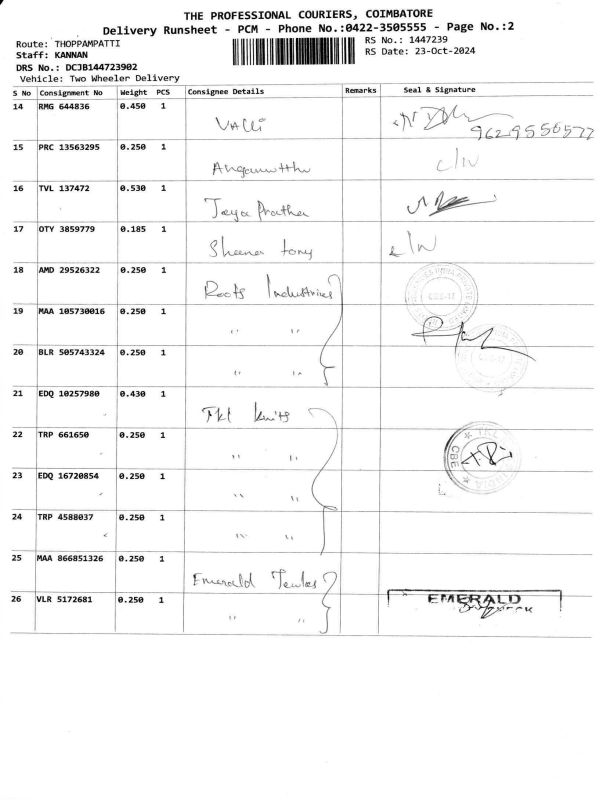 THE PROFESSIONAL COURIERS, COIMBATORE
Delivery Runsheet - PCM - Phone No.:0422-3505555 - Page No.:2
Route: THOPPAMPATTI
RS No.: 1447239
Staff: KANNAN
RS Date: 23-Oct-2024
DRS No.: DCJB144723902
Vehicle: Two Wheeler Delivery
S No Consignment No Weight PCS Consignee Details Remarks Seal & Signature
14 RMG 644836 0.450 1 Valli 9629556577
15 PRC 13563295 0.250 1 Angamuthu c/w
16 TVL 137472 0.530 1 Jeya Pratha
17 OTY 3859779 0.185 1 Sheena tony
18 AMD 29526322 0.250 1 Roots Industries
19 MAA 105730016 0.250 1 " "
20 BLR 505743324 0.250 1 " "
21 EDQ 10257980 0.430 1 Tkl knits
22 TRP 661650 0.250 1 " "
23 EDQ 16720854 0.250 1 " "
24 TRP 4588037 0.250 1 " "
25 MAA 866851326 0.250 1 Emerald
26 VLR 5172681 0.250 1 " " EMERALD